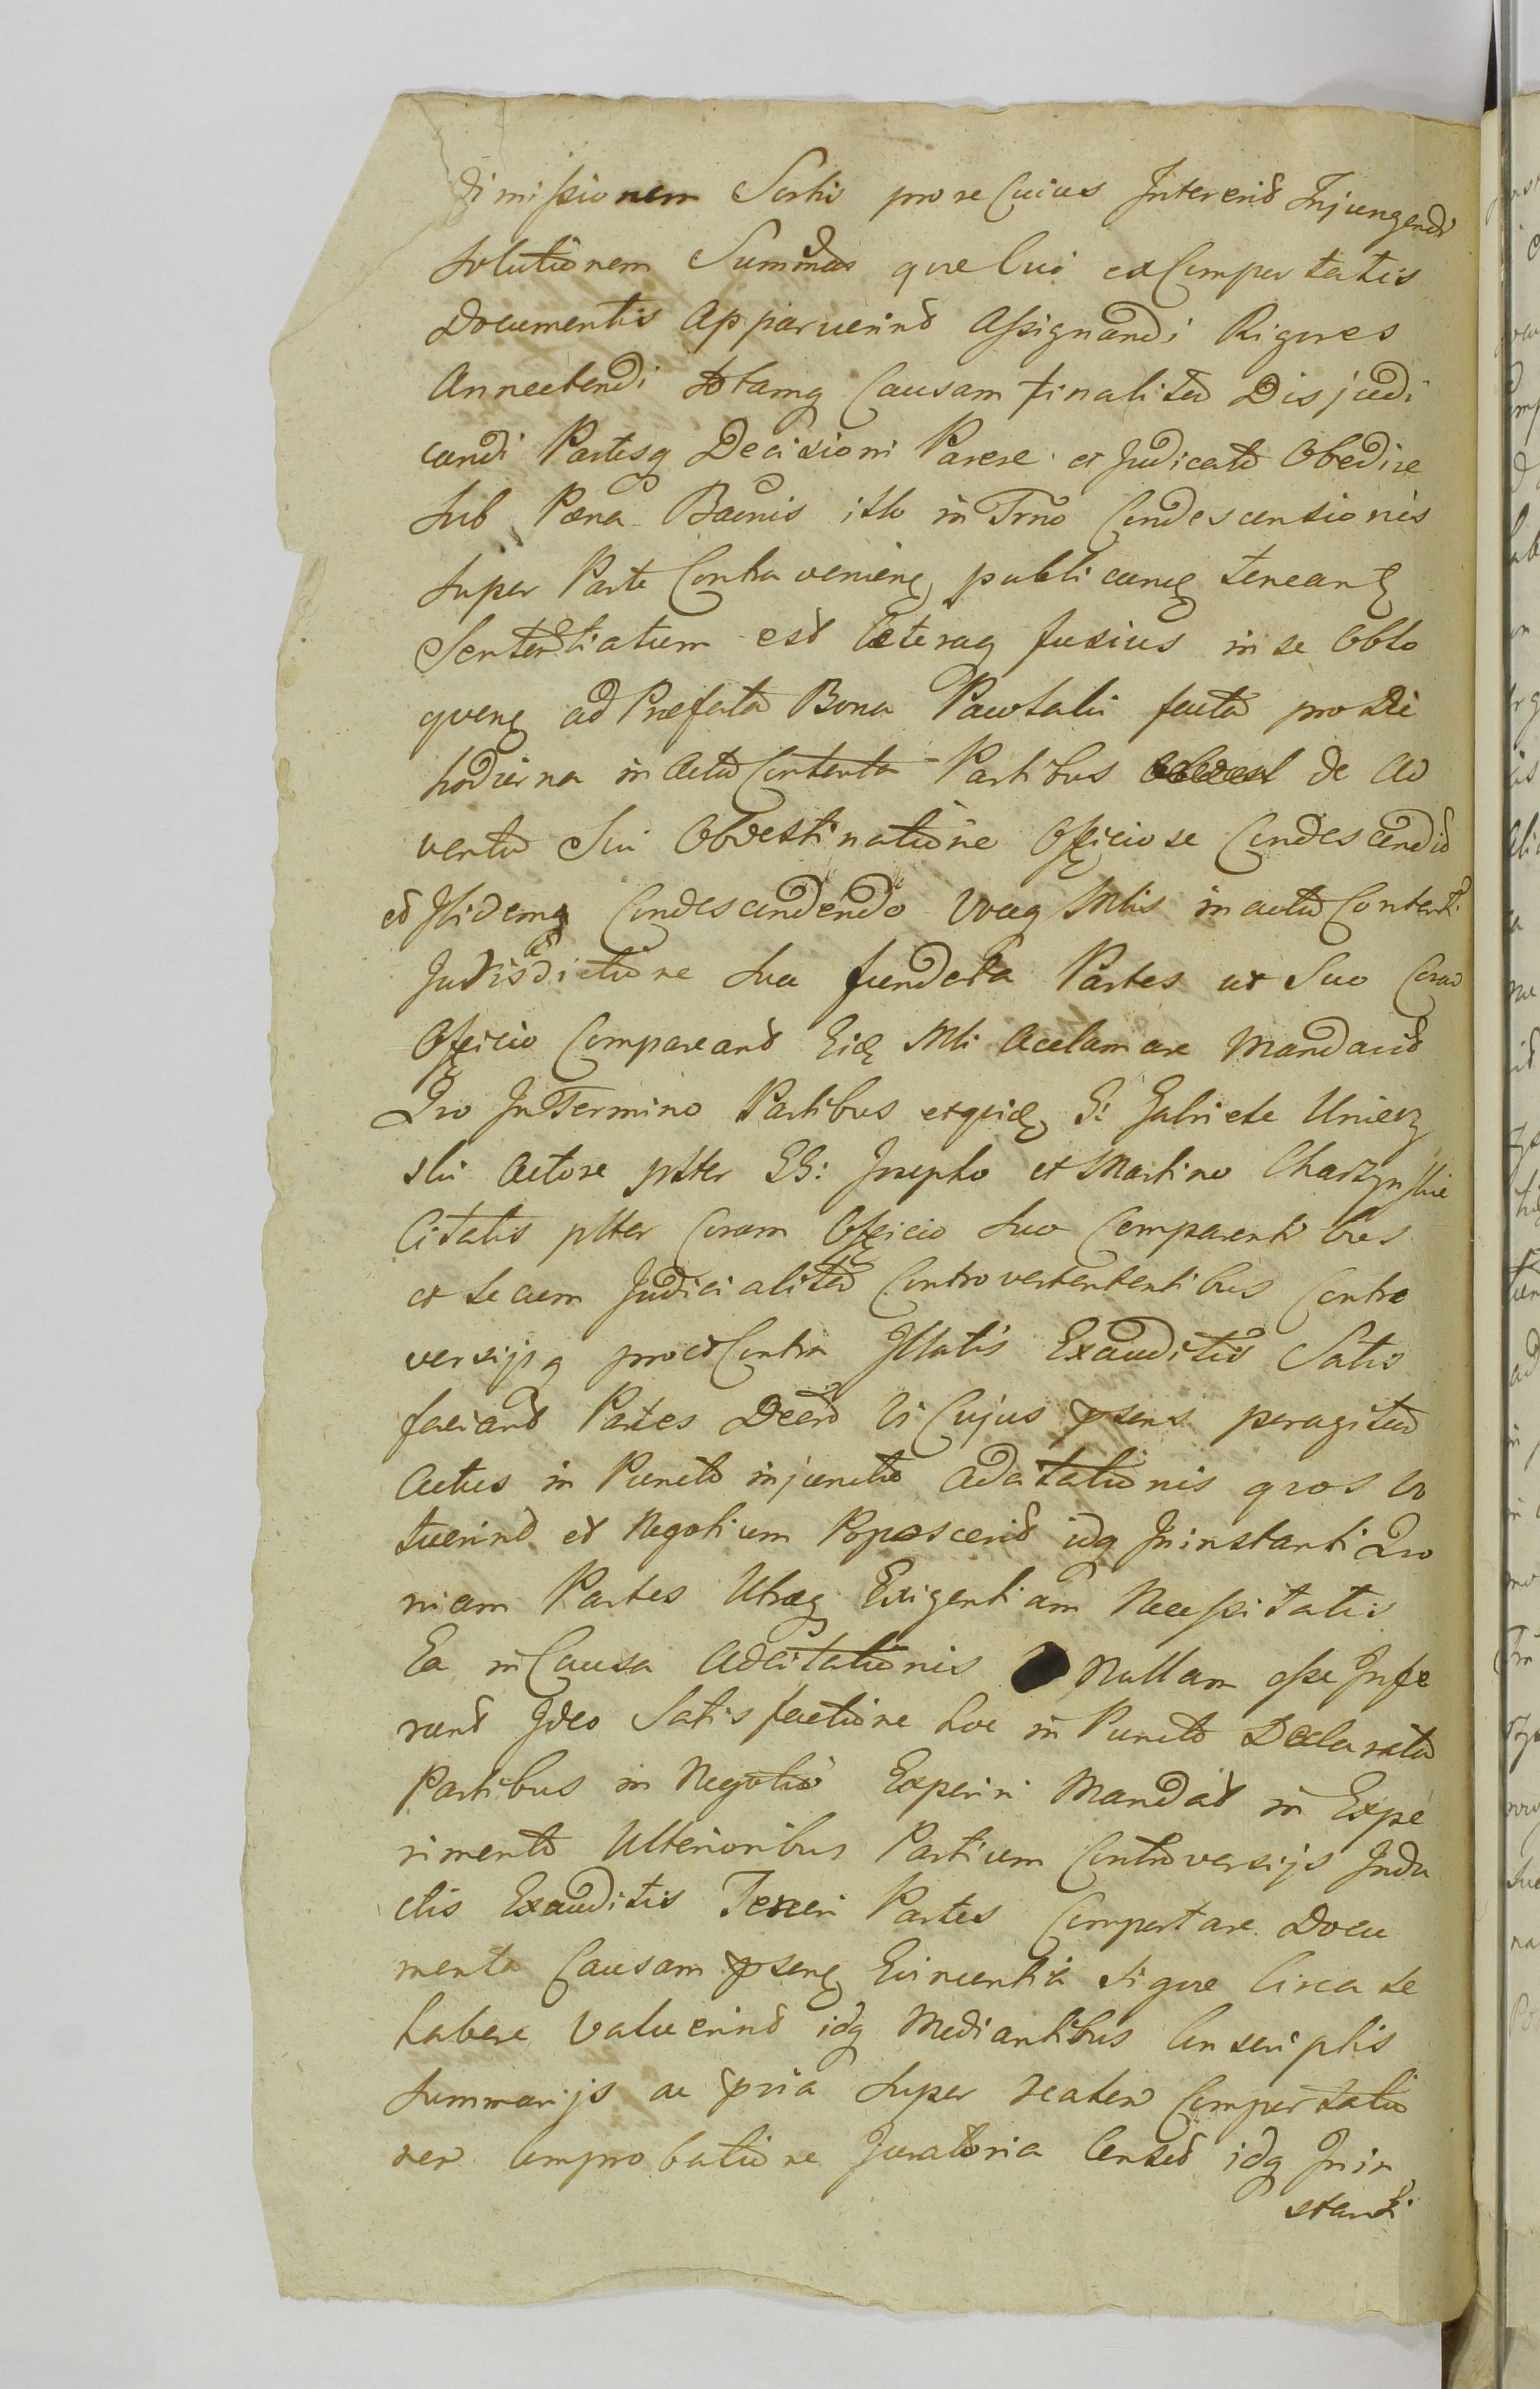 dimissionem Sortis pro re Cuius Intererit Injungendi
Solutionem Summas quae lui ex Comportatis
Documentis Apparuerint Assignandi Rigores
Annectendi totamq Causam finaliter Disjudi
candi Partesq Decisioni Parere et Judicato Obedire
Sub Pœna Bannis isto in Trno Condescensionis
Super Parte Contraveniens publicanđ teneant
Sententiatum est Cæteraq fusius in se Oblo
quens ad Præfata Bona Pawlaki facta pro Die
hodierna in Actu Contenta Partibus de Ad
ventu Sui Obvestinatione Officiose Condescendit
et Ibidemq Condescendendo Vocag Mlis in actu Content
Jurisdictione Sua fundata Partes ut Suo Coram
Officio Compareant Eide Mli Acclamare Mandavit
Quo In Termino Partibus et quide G: Gabriele Unierz
ski Actore ptter GG: Josepho et Martino Charzynskie
Citatis ptter Coram Officio Suo Comparentibus
et Secum Judicialiter Controvertentibus Contro
versijsq pro et Contra Illatis Exauditis Satis
faciant Partes Decro Vi Cujus psens peragitur
Actus in Puncto injuncto Adcitationis quos Vo
tuerint et Negotium Poposcerit idq Ininstanti Quo
niam Partes Utræq Exigentiam Necessitatis
Ea in Causa Adcitationis Nullam esse Infe
runt Ideo Satisfactione hoc in Puncto Declarata
Partibus in Negotio Experiri Mandat in Expe
rimento Ulterioribus Partium Controversijs Indu
ctis Exauditis Teneri Partes Comportare Docu
menta Causam psens Evincentia si quæ Circa se
habere Valuerint idq Mediantibus Conscriptis
Summarijs ac pvia Super reatem Comportatio
nem Comprobatione Juratoria Censet idq Inin
stanti